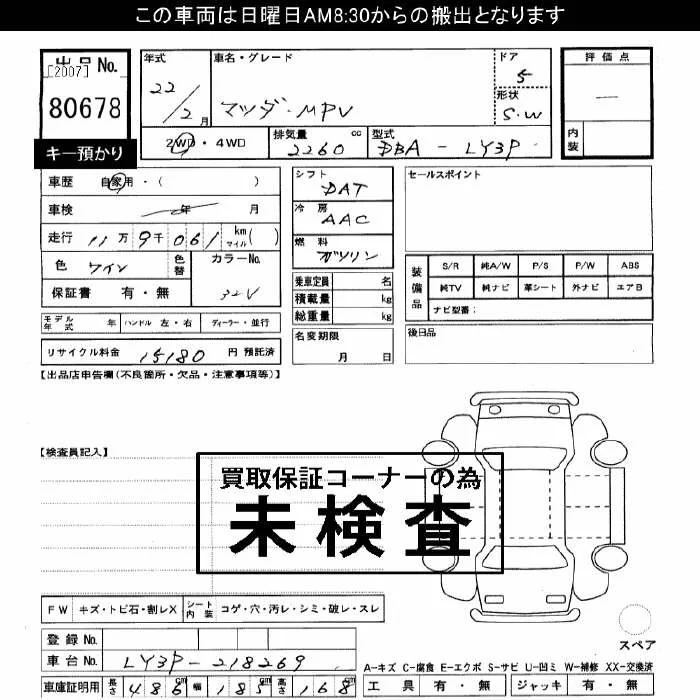 この車両は日曜日AM8:30からの搬出となります
出品No.
[2007]
80678
キー預かり
年式 22/2月
車名・グレード マツダ・MPV
ドア 5
形状 S・W
評価点 —
内装
2WD・4WD
排気量 2260 cc
型式 DBA-LY3P
車歴 自家用・( )
車検 年 月
走行 11万9千061 km マイル ( )
色 ワイン
色替
カラーNo. 32V
保証書 有・無
シフト DAT
冷房 AAC
燃料 ガソリン
乗車定員 名
積載量 kg
総重量 kg
セールスポイント
装備品 S/R 純A/W P/S P/W ABS
純TV 純ナビ 革シート 外ナビ エアB
ナビ型番:
モデル年式 年 ハンドル 左・右 ディーラー・並行
名変期限 月 日
後日品
リサイクル料金 15180 円 預託済
【出品店申告欄(不良箇所・欠品・注意事項等)】
【検査員記入】
買取保証コーナーの為
未検査
FW キズ・トビ石・割レX シート内装 コゲ・穴・汚レ・シミ・破レ・スレ
スペア
登録No.
車台No. LY3P-218269
A-キズ C-腐食 E-エクボ S-サビ U-凹ミ W-補修 XX-交換済
車庫証明用 長さ 486cm 幅 185cm 高さ 168cm
工具 有・無 ジャッキ 有・無